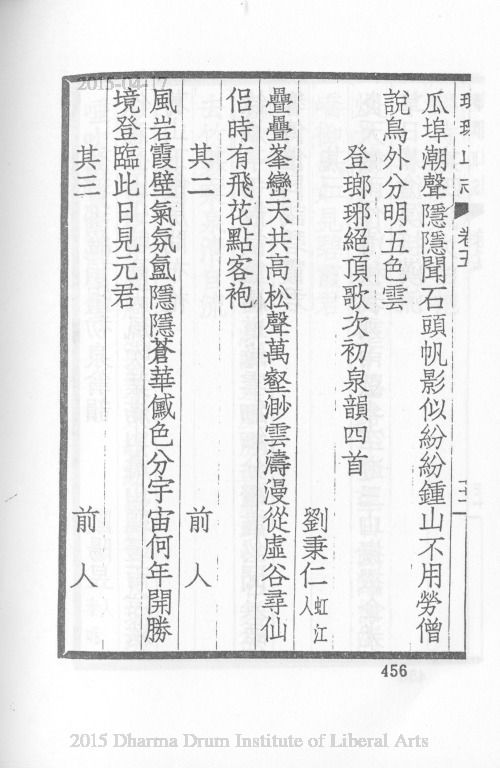 2015-04-17
瑯琊山志 卷五
瓜埠潮聲隱隱聞石頭帆影似紛紛鍾山不用勞僧
說鳥外分明五色雲
登瑯琊絕頂歌次初泉韻四首
劉秉仁虹江人
疊疊峯巒天共高松聲萬壑渺雲濤漫從虛谷尋仙
侶時有飛花點客袍
其二 前人
風岩霞壁氣氛氳隱隱蒼華儎色分宇宙何年開勝
境登臨此日見元君
其三 前人
456
2015 Dharma Drum Institute of Liberal Arts